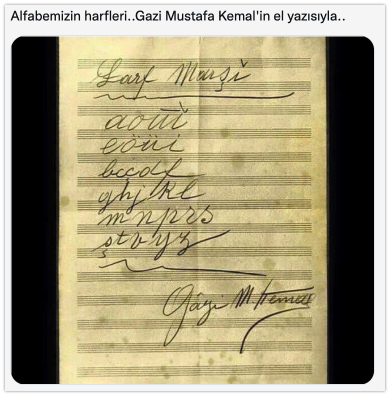 Alfabemizin harfleri..Gazi Mustafa Kemal'in el yazısıyla..
Harf Marşi
aouı
eöüi
bcçdf
ghjkl
mnprs
ştvyz
Gazi M Kemal